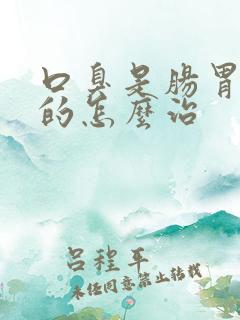 口臭是腸胃
的怎麼治
呂程平
未经同意禁止转载